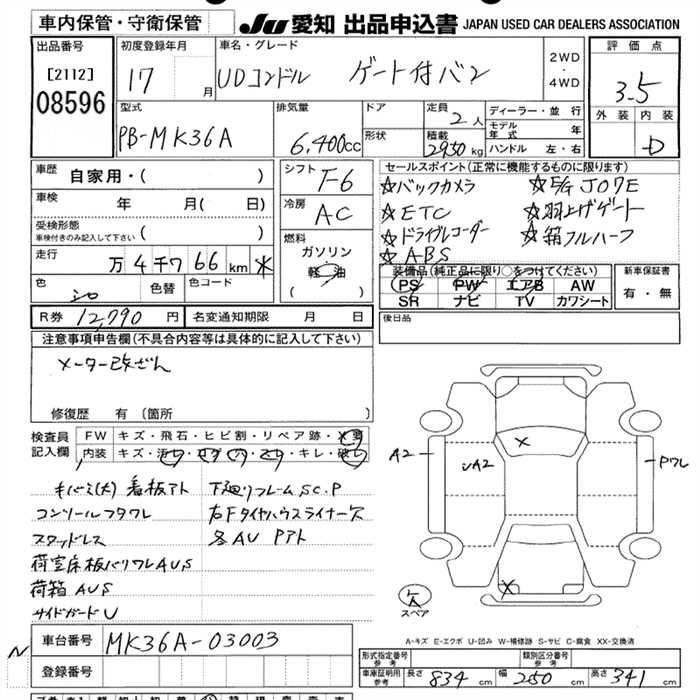 車内保管・守衛保管
JU 愛知 出品申込書 JAPAN USED CAR DEALERS ASSOCIATION
出品番号
[2112]
08596
初度登録年月
17 月
車名・グレード
UDコンドル ゲート付バン
2WD
・
4WD
評価点
3.5
外装 内装
D
型式
PB-MK36A
排気量
6,400cc
ドア
形状
定員 2人
積載 2950kg
ディーラー・並行
モデル年式 年
ハンドル 左・右
車歴 自家用・( )
車検 年 月( 日)
受検形態
車検付きのみ記入して下さい ( )
走行
万 4千7 66km *
色 シロ 色替 色コード
シフト F-6
冷房 AC
燃料
ガソリン
軽油
( )
セールスポイント(正常に機能するものに限ります)
☆バックカメラ
☆ETC
☆ドライブレコーダー
☆ABS
☆E/G J07E
☆羽上げゲート
☆箱フルハーフ
装備品(純正品に限り○をつけてください)
PS PW エアB AW
SR ナビ TV カワシート
新車保証書
有・無
R券 12,790円 名変通知期限 月 日
後日品
注意事項申告欄(不具合内容等は具体的に記入して下さい)
メーター改ざん
修復歴 有(箇所 )
検査員記入欄
FW キズ・飛石・ヒビ割・リペア跡・X要
内装 キズ・汚レ・コゲ・穴・スレ・キレ・破レ
キバミ(大) 看板アト
コンソールフタワレ
スタッドレス
荷室床板バリワレAUS
荷箱 AUS
サイドガードU
下廻りフレームSC.P
右Fタイヤハウスライナー欠
各AU Pアト
A2
A2
Pワレ
X
X
スペア
A-キズ E-エクボ U-凹み W-補修跡 S-サビ C-腐食 XX-交換済
N
車台番号 MK36A-03003
登録番号
形式指定番号
参考
類別区分番号
参考
車庫証明用
参考
長さ 834cm 幅 250cm 高さ 341cm